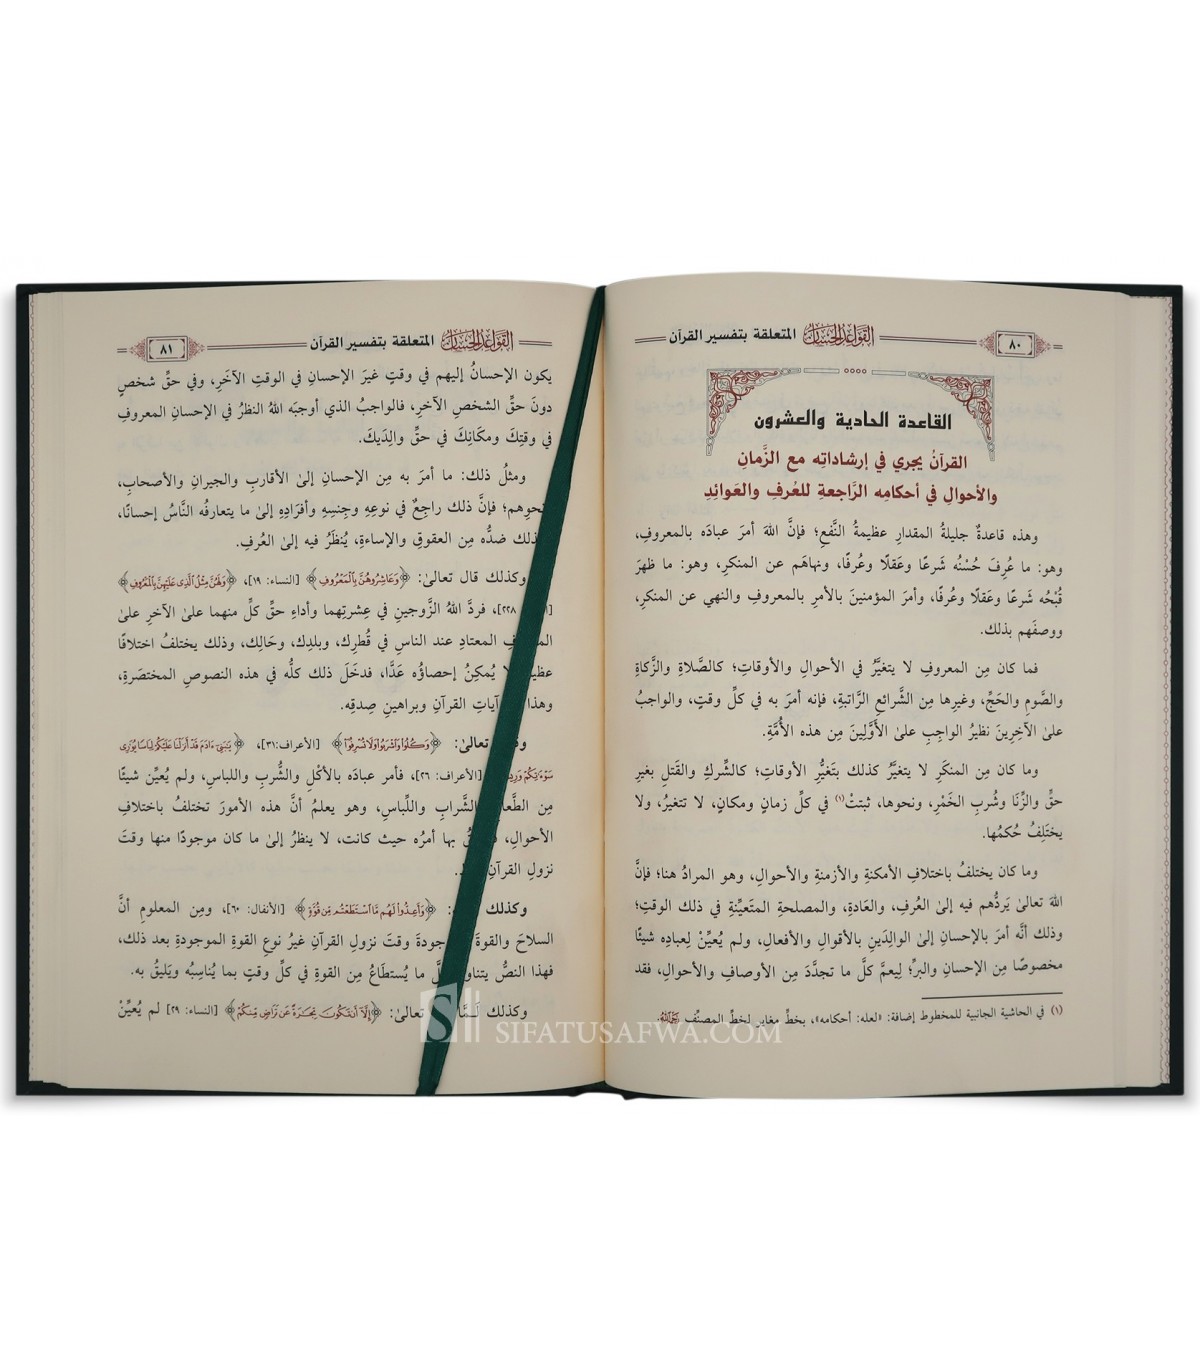 ٨٠
القَوَاعِدُ الحِسَانُ المتعلقة بتفسير القرآن
القاعدة الحادية والعشرون
القرآنُ يجري في إرشاداتِه مع الزَّمانِ
والأحوالِ في أحكامِه الرَّاجعةِ للعُرفِ والعَوائِدِ
وهذه قاعدةٌ جليلةُ المقدارِ عظيمةُ النَّفعِ؛ فإنَّ اللهَ أمرَ عبادَه بالمعروفِ،
وهو: ما عُرِفَ حُسْنُه شَرعًا وعَقلًا وعُرفًا، ونهاهَم عن المنكرِ، وهو: ما ظهرَ
قُبْحُه شَرعًا وعَقلًا وعُرفًا، وأمرَ المؤمنينَ بالأمرِ بالمعروفِ والنهي عن المنكرِ،
ووصفَهم بذلك.
فما كان مِن المعروفِ لا يتغيَّرُ في الأحوالِ والأوقاتِ؛ كالصَّلاةِ والزَّكاةِ
والصَّومِ والحَجِّ، وغيرِها مِن الشَّرائعِ الرَّاتبةِ، فإنه أمرَ به في كلِّ وقتٍ، والواجبُ
علىٰ الآخِرِينَ نظيرُ الواجبِ علىٰ الأَوَّلِينَ مِن هذه الأُمَّةِ.
وما كان مِن المنكَرِ لا يتغيَّرُ كذلك بتَغيُّرِ الأوقاتِ؛ كالشِّركِ والقَتلِ بغيرِ
حقٍّ والزِّنَا وشُربِ الخَمْرِ، ونحوِها، ثبتتْ(١) في كلِّ زمانٍ ومكانٍ، لا تتغيرُ، ولا
يختَلِفُ حُكمُها.
وما كان يختلفُ باختلافِ الأمكنةِ والأزمنةِ والأحوالِ، وهو المرادُ هنا؛ فإنَّ
اللهَ تعالىٰ يَردُّهم فيه إلىٰ العُرفِ، والعَادةِ، والمصلحةِ المتَعيِّنةِ في ذلك الوقتِ؛
وذلك أنَّه أمرَ بالإحسانِ إلىٰ الوالِدَينِ بالأقوالِ والأفعالِ، ولم يُعيِّنْ لِعبادِه شيئًا
مخصوصًا مِن الإحسانِ والبرِّ؛ لِيعمَّ كلَّ ما تجدَّدَ مِن الأوصافِ والأحوالِ، فقد
(١) في الحاشية الجانبية للمخطوط إضافة: «لعله: أحكامه»، بخطٍّ مغايرٍ لخطِّ المصنِّف رَحِمَهُ اللهُ.
٨١
القَوَاعِدُ الحِسَانُ المتعلقة بتفسير القرآن
يكون الإحسانُ إليهم في وقتٍ غيرَ الإحسانِ في الوقتِ الآخَرِ، وفي حقِّ شخصٍ
دونَ حقِّ الشخصِ الآخرِ، فالواجبُ الذي أوجبَه اللهُ النظرُ في الإحسانِ المعروفِ
في وقتِكَ ومكَانِكَ في حقِّ والِدَيكَ.
ومثلُ ذلك: ما أمرَ به مِن الإحسانِ إلىٰ الأقاربِ والجيرانِ والأصحابِ،
ونحوِهم؛ فإنَّ ذلك راجِعٌ في نوعِهِ وجِنسِهِ وأفرَادِهِ إلىٰ ما يتعارفُه النَّاسُ إحسانًا،
ذلك ضدُّه مِن العقوقِ والإساءةِ، يُنظَرُ فيه إلىٰ العُرفِ.
وكذلك قال تعالىٰ: ﴿وَعَاشِرُوهُنَّ بِالْمَعْرُوفِ﴾ [النساء: ١٩]، ﴿وَلَهُنَّ مِثْلُ الَّذِي عَلَيْهِنَّ بِالْمَعْرُوفِ﴾
٢٢٨]، فردَّ اللهُ الزَّوجينِ في عِشرتِهما وأداءِ حقِّ كلٍّ منهما علىٰ الآخرِ علىٰ
المعتادِ عند الناسِ في قُطرِك، وبلدِك، وحَالِك، وذلك يختلفُ اختلافًا
عظيمًا لا يُمكِنُ إحصاؤُه عَدًّا، فدخَلَ ذلك كلُّه في هذه النصوصِ المختصَرةِ،
وهذا آياتِ القرآنِ وبراهينِ صِدقِه.
تعالىٰ: ﴿وَكُلُوا وَاشْرَبُوا وَلَا تُسْرِفُوا﴾ [الأعراف:٣١]، ﴿يَٰبَنِي ءَادَمَ قَدْ أَنزَلْنَا عَلَيْكُمْ لِبَاسًا يُوَٰرِي
سَوْءَٰتِكُمْ [الأعراف: ٢٦]، فأمر عبادَه بالأكْلِ والشُّربِ واللباسِ، ولم يُعيِّن شيئًا
مِن الطَّعامِ والشَّرابِ واللِّباسِ، وهو يعلمُ أنَّ هذه الأمورَ تختلفُ باختلافِ
الأحوالِ، بها أمرُه حيث كانت، لا ينظرُ إلىٰ ما كان موجودًا منها وقتَ
نزولِ القرآنِ
وكذلك ﴿وَأَعِدُّوا لَهُم مَّا اسْتَطَعْتُم مِّن قُوَّةٍ﴾ [الأنفال: ٦٠]، ومِن المعلومِ أنَّ
السلاحَ والقوةَ الموجودةَ وقتَ نزولِ القرآنِ غيرُ نوعِ القوةِ الموجودةِ بعد ذلك،
فهذا النصُّ يتناولُ كلَّ ما يُستطَاعُ مِن القوةِ في كلِّ وقتٍ بما يُناسِبُه ويَليقُ به.
وكذلك لَمَّا تعالىٰ: ﴿إِلَّا أَن تَكُونَ تِجَٰرَةً عَن تَرَاضٍ مِّنكُمْ﴾ [النساء: ٢٩] لم يُعيِّنْ
SIFATUSAFWA.COM